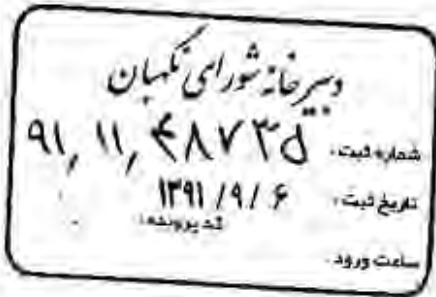 دبیرخانه شورای نگهبان
شماره ثبت: ۹۱, ۱۱, ۴۸۷۳۵
تاریخ ثبت: ۱۳۹۱/۹/۶
کد پرونده:
ساعت ورود: